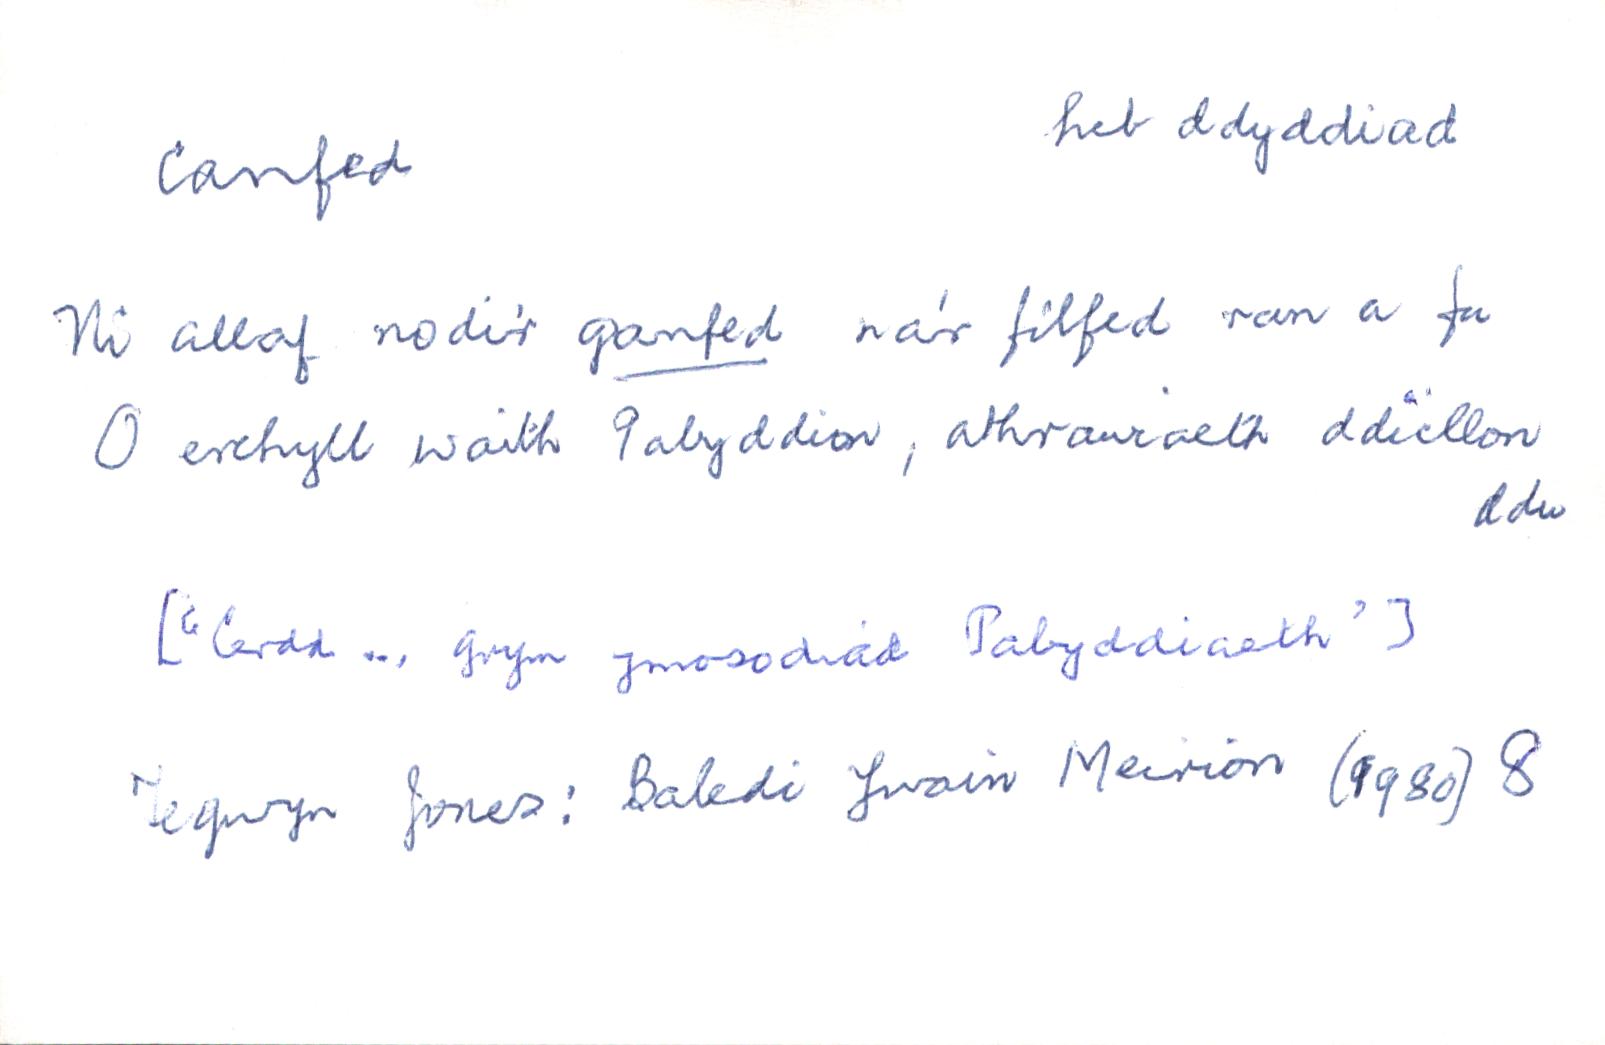 heb ddyddiad
Canfed
Ni allaf nodi'r ganfed na'r filfed ran a fu
O erchyll waith Pabyddion, athrawiaeth ddiëllon
ddu
["Cerdd ... grym ymosodiad Pabyddiaeth']
Tegwyn Jones: Baledi Ywain Meirion (1980) 8